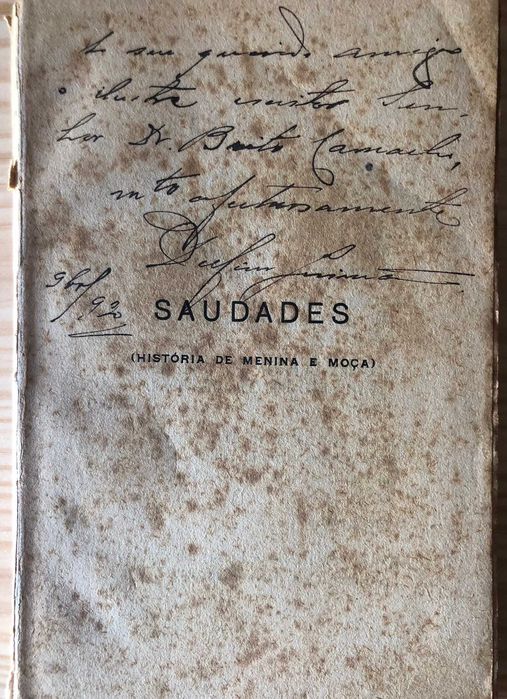 seu querido amigo
o ilustre escritor Sen-
hor Dr. Brito Camacho,
mto afectuosamente
Delfim Guimarães
9br/920
SAUDADES
(HISTÓRIA DE MENINA E MOÇA)